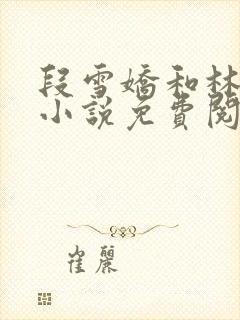 段雪嬌和林
小說免費閱
崔麗